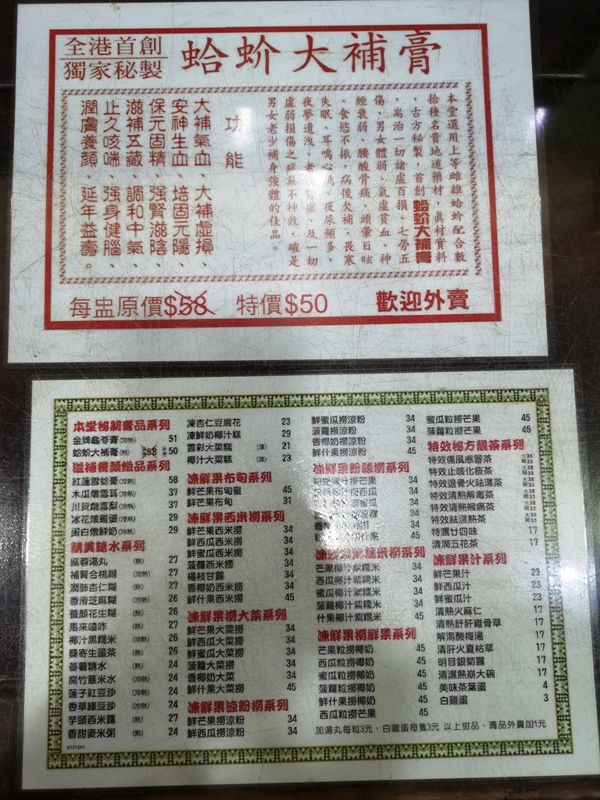 全港首創
獨家秘製
蛤蚧大補膏
本堂選用上等雌雄蛤蚧配合數
拾種名貴地道藥材，真材實料
，古方秘製，首創蛤蚧大補膏
，耑治一切諸虛百損、七勞五
傷，男女體弱、氣虛貧血、神
經衰弱、腰酸骨痛、頭暈目眩
、食慾不振，病後欠補、畏寒
失眠、耳鳴心跳、夜尿頻多、
夜夢遺洩、及一切
虛弱損傷之症無不神效，確是
男女老少補身強體的佳品。
功能
大補氣血、大補虛損、
安神生血、培固元陽、
保元固精、強腎滋陰、
滋補五藏、調和中氣、
止久咳喘、強身健腦、
潤膚養顏、延年益壽。
每盅原價$58 特價$50 歡迎外賣
本堂秘制膏品系列
金牌龜苓膏(冷熱) 51
蛤蚧大補膏(熱) 58 50
滋補養顏燉品系列
紅蓮雪蛤膏(冷熱) 58
木瓜燉雪耳(冷熱) 37
川貝燉雪梨(冷熱) 37
冰花燉雞蛋(冷熱) 29
蛋白燉鮮奶(冷熱) 29
精美糖水系列
麻蓉湯丸 (熱) 27
補腎合桃糊 (冷熱) 27
潤肺杏仁糊 (冷熱) 27
香滑芝麻糊 (冷熱) 26
養顏花生糊 (冷熱) 26
馬來喳咋 (熱) 27
椰汁黑糯米 (冷熱) 26
桑寄生蛋茶 (冷熱) 26
蕃薯糖水 (熱) 24
腐竹薏米水 (冷熱) 24
蓮子紅豆沙 (冷熱) 24
香草綠豆沙 (冷熱) 24
芋頭西米露 (熱) 27
香甜麥米粥 (熱) 24
凍杏仁豆腐花 23
凍鮮奶椰汁糕 29
雲彩大菜糕 (凍) 21
椰汁大菜糕 (凍) 23
凍鮮果布甸系列
鮮芒果布甸皇 45
鮮芒果布甸 31
凍鮮果西米撈系列
鮮芒果西米撈 34
鮮西瓜西米撈 34
鮮蜜瓜西米撈 34
菠蘿西米撈 34
楊枝甘露 34
香椰奶西米撈 34
鮮什果西米撈 45
凍鮮果撈大菜系列
鮮芒果大菜撈 34
鮮西瓜大菜撈 34
鮮蜜瓜大菜撈 34
菠蘿大菜撈 34
香椰奶大菜 34
鮮什果大菜撈 45
凍鮮果涼粉撈系列
鮮芒果撈涼粉 34
鮮西瓜撈涼粉 34
鮮蜜瓜撈涼粉 34
菠蘿撈涼粉 34
香椰奶撈涼粉 34
鮮什果撈涼粉 45
芒果椰汁紫糯米 34
西瓜椰汁紫糯米 34
蜜瓜椰汁紫糯米 34
菠蘿椰汁紫糯米 34
什果椰汁紫糯米 45
凍鮮果撈鮮果系列
芒果粒撈椰奶 45
西瓜粒撈椰奶 45
蜜瓜粒撈椰奶 45
菠蘿粒撈椰奶 45
鮮什粒撈椰奶 45
西瓜粒撈芒果 45
蜜瓜粒撈芒果 45
菠蘿粒撈芒果 45
特效秘方靚茶系列
特效傷風感冒茶
特效止咳化痰茶
特效退骨火祛濕茶
特效清熱解毒茶
特效清熱喉痛茶
特效祛濕熱茶
特濃廿四味 17
清潤五花茶 17
凍鮮果汁系列
鮮芒果汁 23
鮮西瓜汁 23
鮮蜜瓜汁 23
清熱火麻仁 17
清熱舒肝雞骨草 17
解渴酸梅湯 17
清肝火夏枯草 17
明目銀菊露 17
清濕熱崩大碗 17
美味茶葉蛋 4
白雞蛋 3
加湯丸每粒3元，白雞蛋每隻3元 以上甜品、膏品外賣加1元